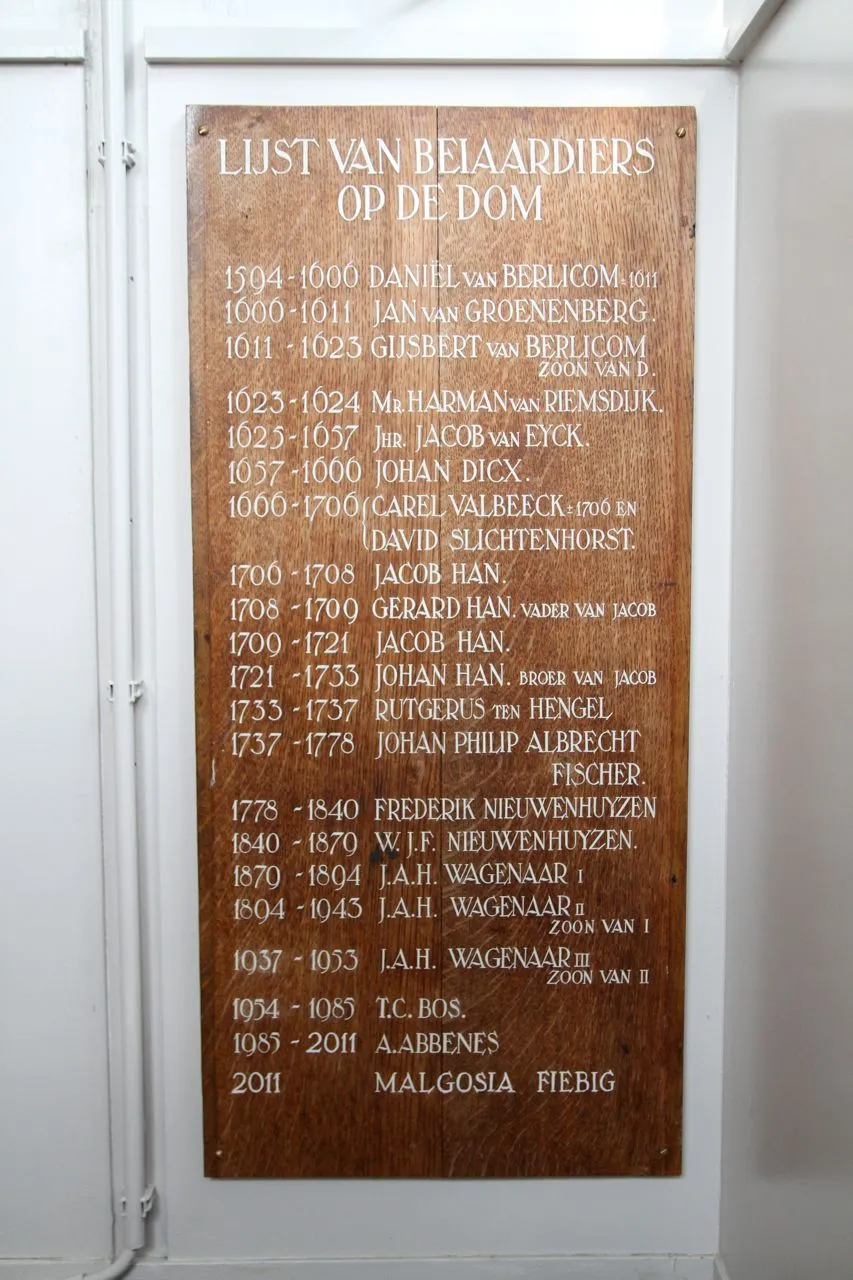 LIJST VAN BEIAARDIERS
OP DE DOM
1594-1606 DANIËL VAN BERLICOM ± 1611
1606-1611 JAN VAN GROENENBERG.
1611 - 1623 GIJSBERT VAN BERLICOM
ZOON VAN D.
1623-1624 MR. HARMAN VAN RIEMSDIJK.
1625-1657 JHR. JACOB VAN EYCK.
1657-1666 JOHAN DICX.
1666-1706 { CAREL VALBEECK ± 1706 EN
DAVID SLICHTENHORST.
1706 - 1708 JACOB HAN.
1708 - 1709 GERARD HAN. VADER VAN JACOB
1709 - 1721 JACOB HAN.
1721 - 1733 JOHAN HAN. BROER VAN JACOB
1733 - 1737 RUTGERUS TEN HENGEL
1737 - 1778 JOHAN PHILIP ALBRECHT
FISCHER.
1778 - 1840 FREDERIK NIEUWENHUYZEN
1840 - 1879 W. J.F. NIEUWENHUYZEN.
1879 - 1894 J.A.H. WAGENAAR I
1894 - 1943 J.A.H. WAGENAAR II
ZOON VAN I
1937 - 1953 J.A.H. WAGENAAR III
ZOON VAN II
1954 - 1985 T.C. BOS.
1985 - 2011 A. ABBENES
2011 MALGOSIA FIEBIG